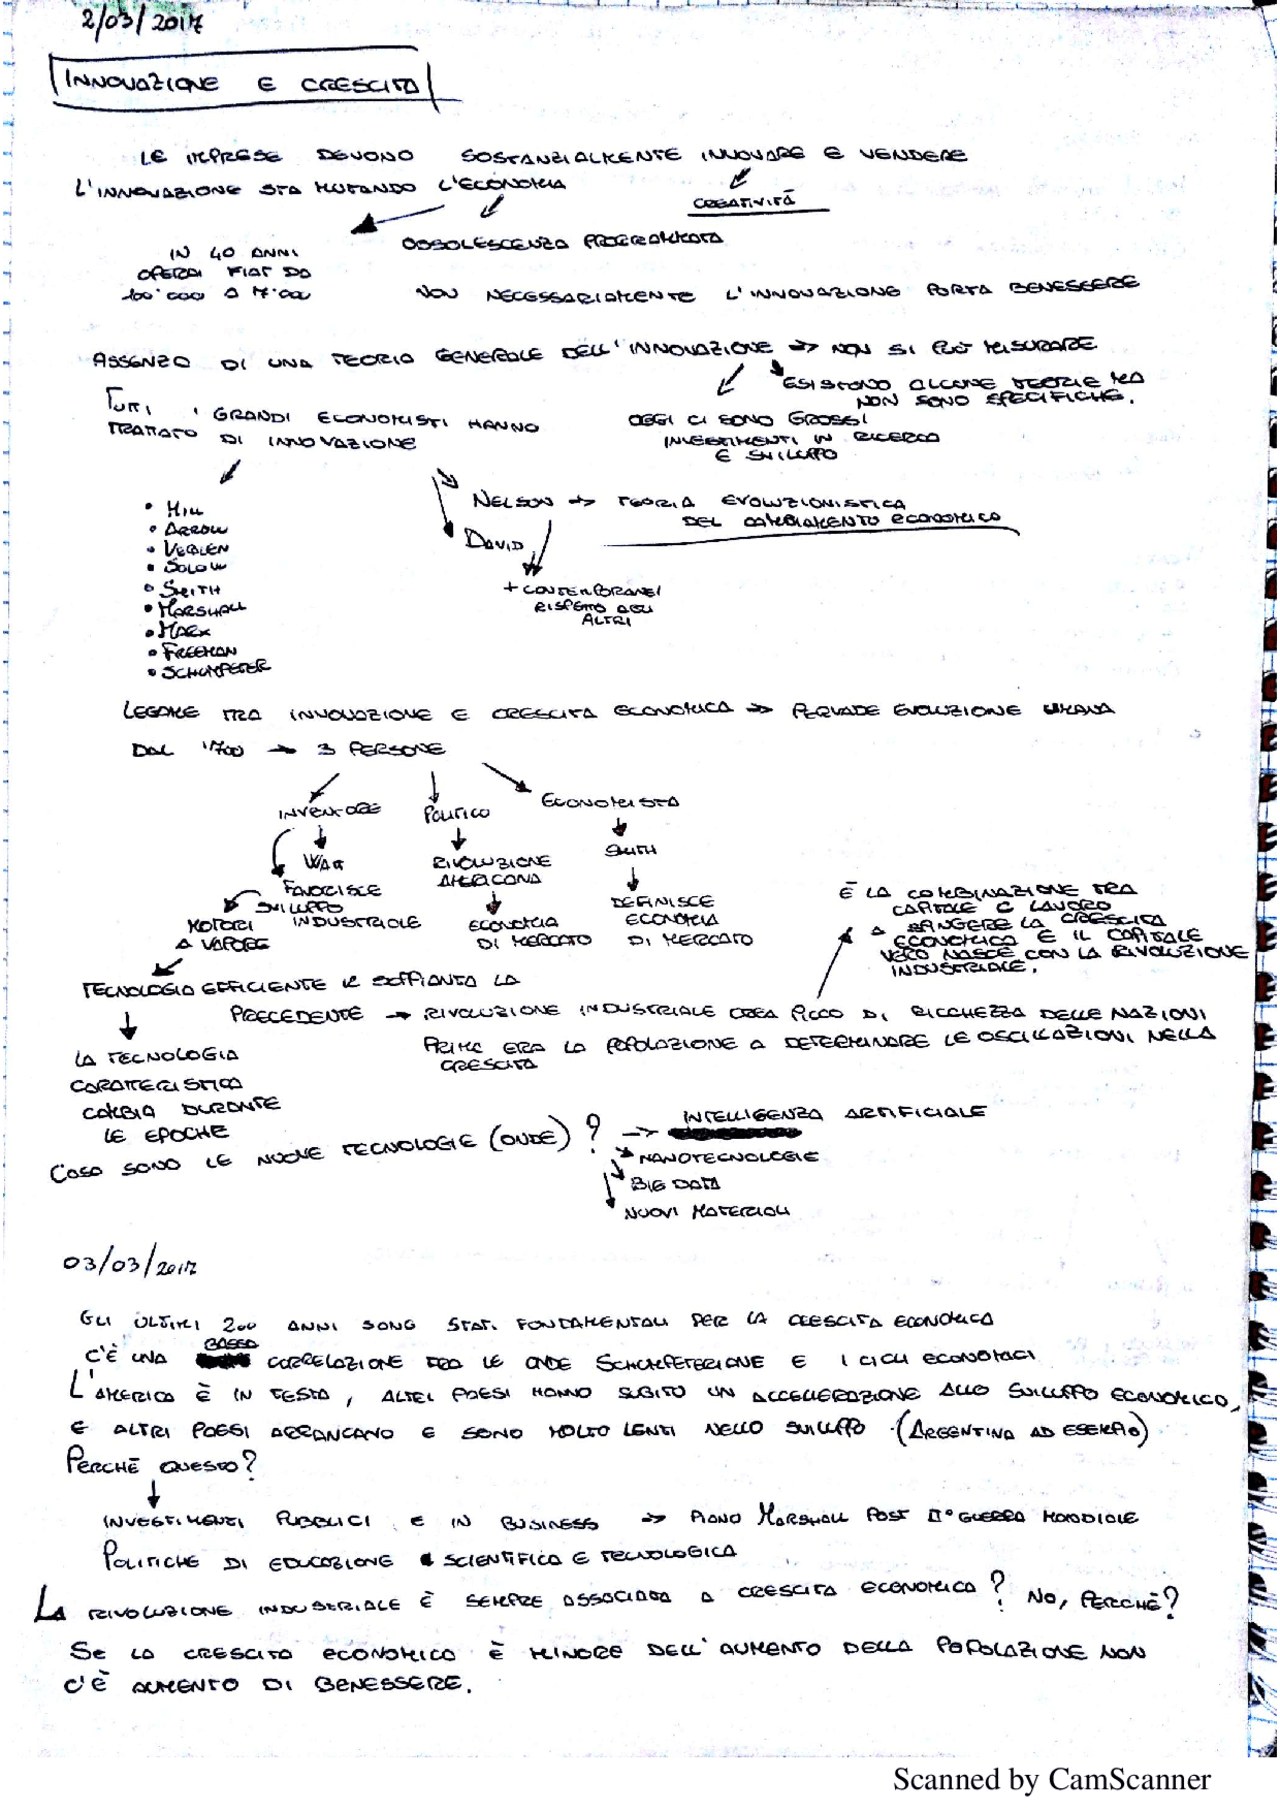 2/03/2017
INNOVAZIONE E CRESCITA
LE IMPRESE DEVONO SOSTANZIALMENTE INNOVARE E VENDERE
L'INNOVAZIONE STA MUTANDO L'ECONOMIA
CREATIVITÀ
OBSOLESCENZA PROGRAMMATA
IN 40 ANNI
OPERAI FIAT DA
100'000 A 17'000
NON NECESSARIAMENTE L'INNOVAZIONE PORTA BENESSERE
ASSENZA DI UNA TEORIA GENERALE DELL'INNOVAZIONE => NON SI PUÒ MISURARE
ESISTONO ALCUNE TEORIE MA
NON SONO SPECIFICHE.
TUTTI I GRANDI ECONOMISTI HANNO
TRATTATO DI INNOVAZIONE
OGGI CI SONO GROSSI
INVESTIMENTI IN RICERCA
E SVILUPPO
NELSON => TEORIA EVOLUZIONISTICA
DEL CAMBIAMENTO ECONOMICO
DAVID
+ CONTEMPORANEI
RISPETTO AGLI
ALTRI
• MILL
• ARROW
• VEBLEN
• SOLOW
• SMITH
• MARSHALL
• MARX
• FREEMAN
• SCHUMPETER
LEGAME TRA INNOVAZIONE E CRESCITA ECONOMICA => PERVADE EVOLUZIONE UMANA
DAL 1700 → 3 PERSONE
INVENTORE POLITICO ECONOMISTA
WATT RIVOLUZIONE AMERICANA SMITH
FAVORISCE
SVILUPPO
INDUSTRIALE
MOTORI
A VAPORE
ECONOMIA
DI MERCATO
DEFINISCE
ECONOMIA
DI MERCATO
È LA COMBINAZIONE TRA
CAPITALE E LAVORO
A SPINGERE LA CRESCITA
ECONOMICA E IL CAPITALE
VERO NASCE CON LA RIVOLUZIONE
INDUSTRIALE.
TECNOLOGIA EFFICIENTE SOPPIANTA LA
PRECEDENTE → RIVOLUZIONE INDUSTRIALE CREA PICCO DI RICCHEZZA DELLE NAZIONI
PRIMA ERA LA POPOLAZIONE A DETERMINARE LE OSCILLAZIONI NELLA
CRESCITA
LA TECNOLOGIA
CARATTERISTICA
CAMBIA DURANTE
LE EPOCHE
COSA SONO LE NUOVE TECNOLOGIE (ONDE)? → INTELLIGENZA ARTIFICIALE
NANOTECNOLOGIE
BIG DATA
NUOVI MATERIALI
03/03/2017
GLI ULTIMI 200 ANNI SONO STATI FONDAMENTALI PER LA CRESCITA ECONOMICA
C'È UNA BASSA CORRELAZIONE TRA LE ONDE SCHUMPETERIANE E I CICLI ECONOMICI
L'AMERICA È IN TESTA, ALTRI PAESI HANNO SUBITO UN ACCELLERAZIONE ALLO SVILUPPO ECONOMICO,
E ALTRI PAESI ARRANCANO E SONO MOLTO LENTI NELLO SVILUPPO. (ARGENTINA AD ESEMPIO)
PERCHÈ QUESTO?
INVESTIMENTI PUBBLICI E IN BUSINESS => PIANO MARSHALL POST IIª GUERRA MONDIALE
POLITICHE DI EDUCAZIONE SCIENTIFICA E TECNOLOGICA
LA RIVOLUZIONE INDUSTRIALE È SEMPRE ASSOCIATA A CRESCITA ECONOMICA? NO, PERCHÈ?
SE LA CRESCITA ECONOMICA È MINORE DELL'AUMENTO DELLA POPOLAZIONE NON
C'È AUMENTO DI BENESSERE.
Scanned by CamScanner